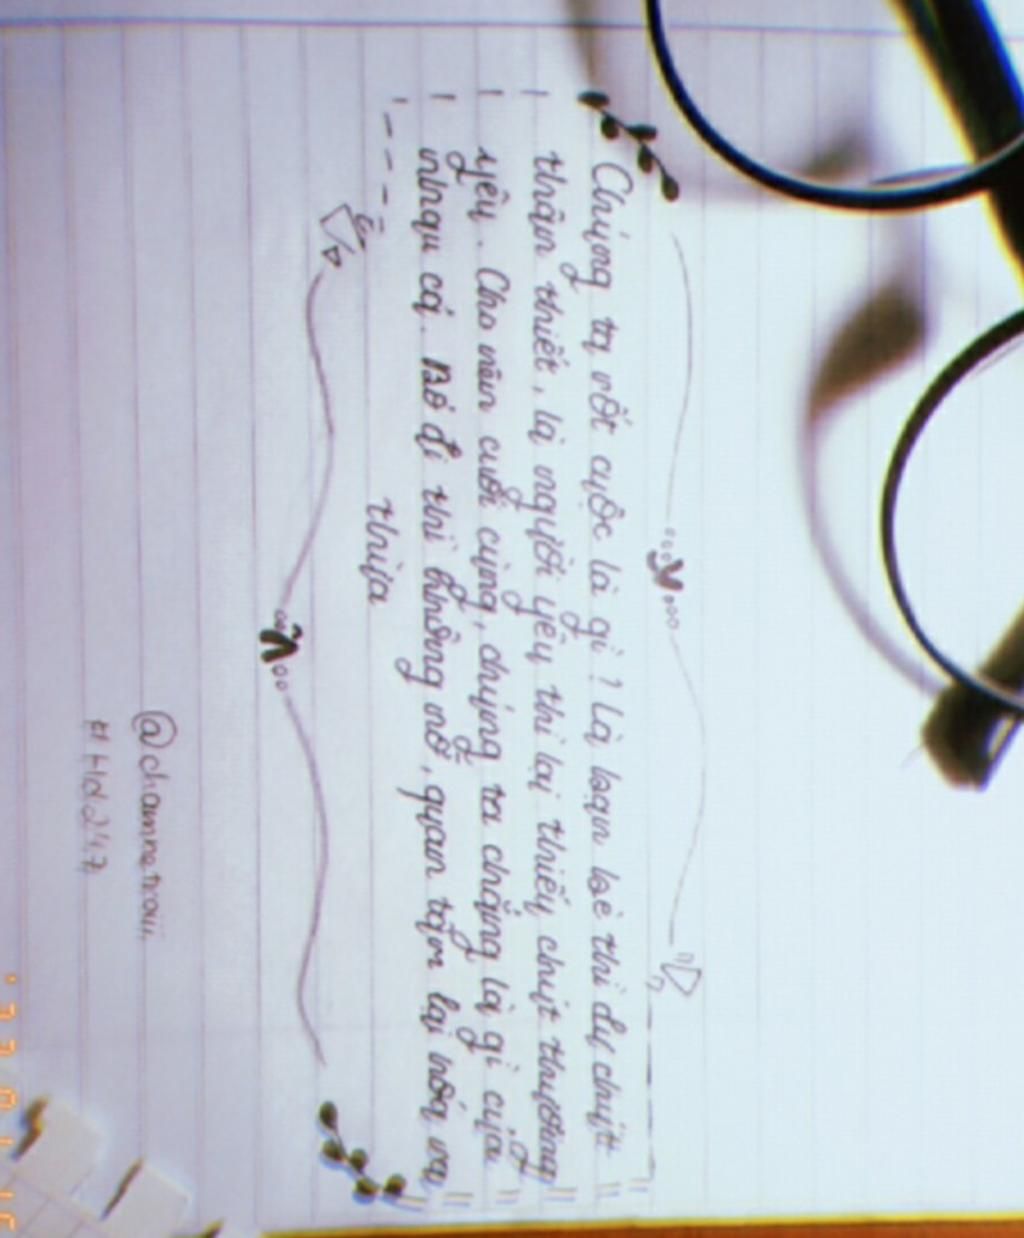 Chúng ta rốt cuộc là gì? Là bạn bè thì dư chút
thân thiết, là người yêu thì lại thiếu chút thương
yêu. Cho nên cuối cùng, chúng ta chẳng là gì của
nhau cả. Bỏ đi thì không nỡ, quan tâm lại hoá ra
thừa
@chamne.troiii.